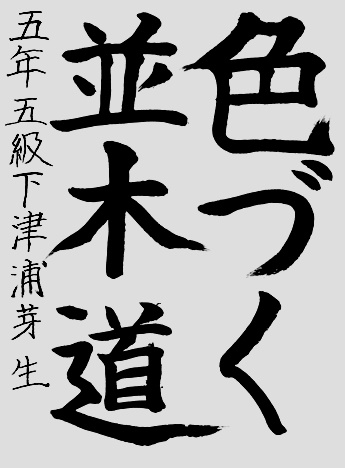 色づく
並木道
五年五級下津浦芽生